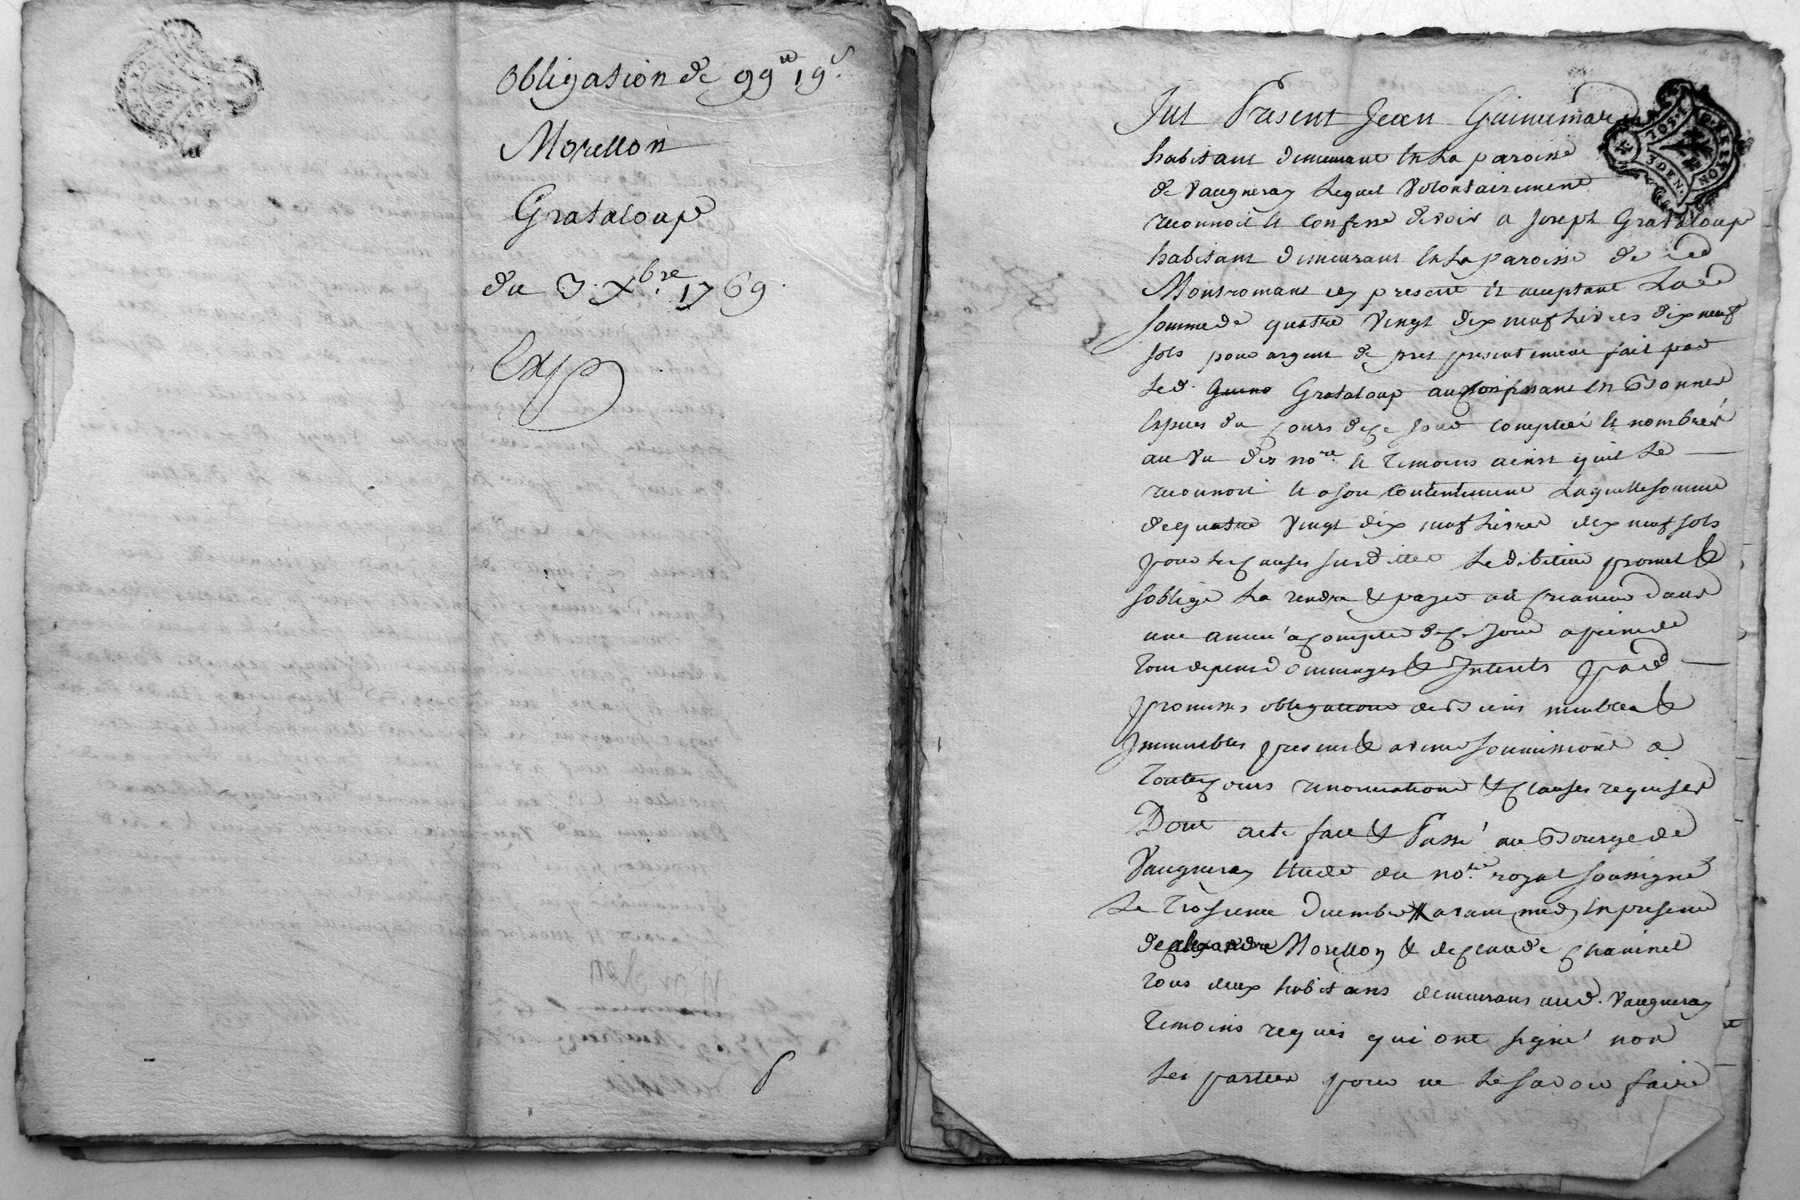 Obligation de 99ᵗᵗ 19ˢ.
Morellon
Grataloup
du 3. Xbre. 1769.
Exp
Fut Présent Jean Guinemard
habitant demeurant en la paroisse
de Vaugneray lequel volontairement
reconnoit et confesse devoir a Joseph Grataloup
habitant demeurant en la paroisse de
Montromant icy present et acceptant La
somme de quatre vingt dix neuf livres dix neuf
sols pour argent de pret presentement fait par
led. Grataloup au confessant en Bonnes
Especes du cours de ce jour comptées et nombrées
au Vu des nore. et temoins ainsi quil le
reconnoit et a son contentement Laquelle somme
de quatre vingt dix neuf livres dix neuf sols
pour les causes susdittes le debiteur promet &
soblige la rendre & payer au creancier dans
une année a compter de ce jour a peine de
tous depens dommages & Interets par
promesses obligations de ses Biens meubles &
Immeubles presens & avenir soumissions a
toutes cours renonciations & clauses requises
Dont acte fait & Passé au Bourg de
Vaugneray Etude du nore. royal soussigné
Le troisieme Decembre avant midy en presence
de alexandre Morellon & de claude chaninel
tous deux habitans demeurans aud. Vaugneray
temoins requis qui ont signé non
Les parties pour ne le savoir faire